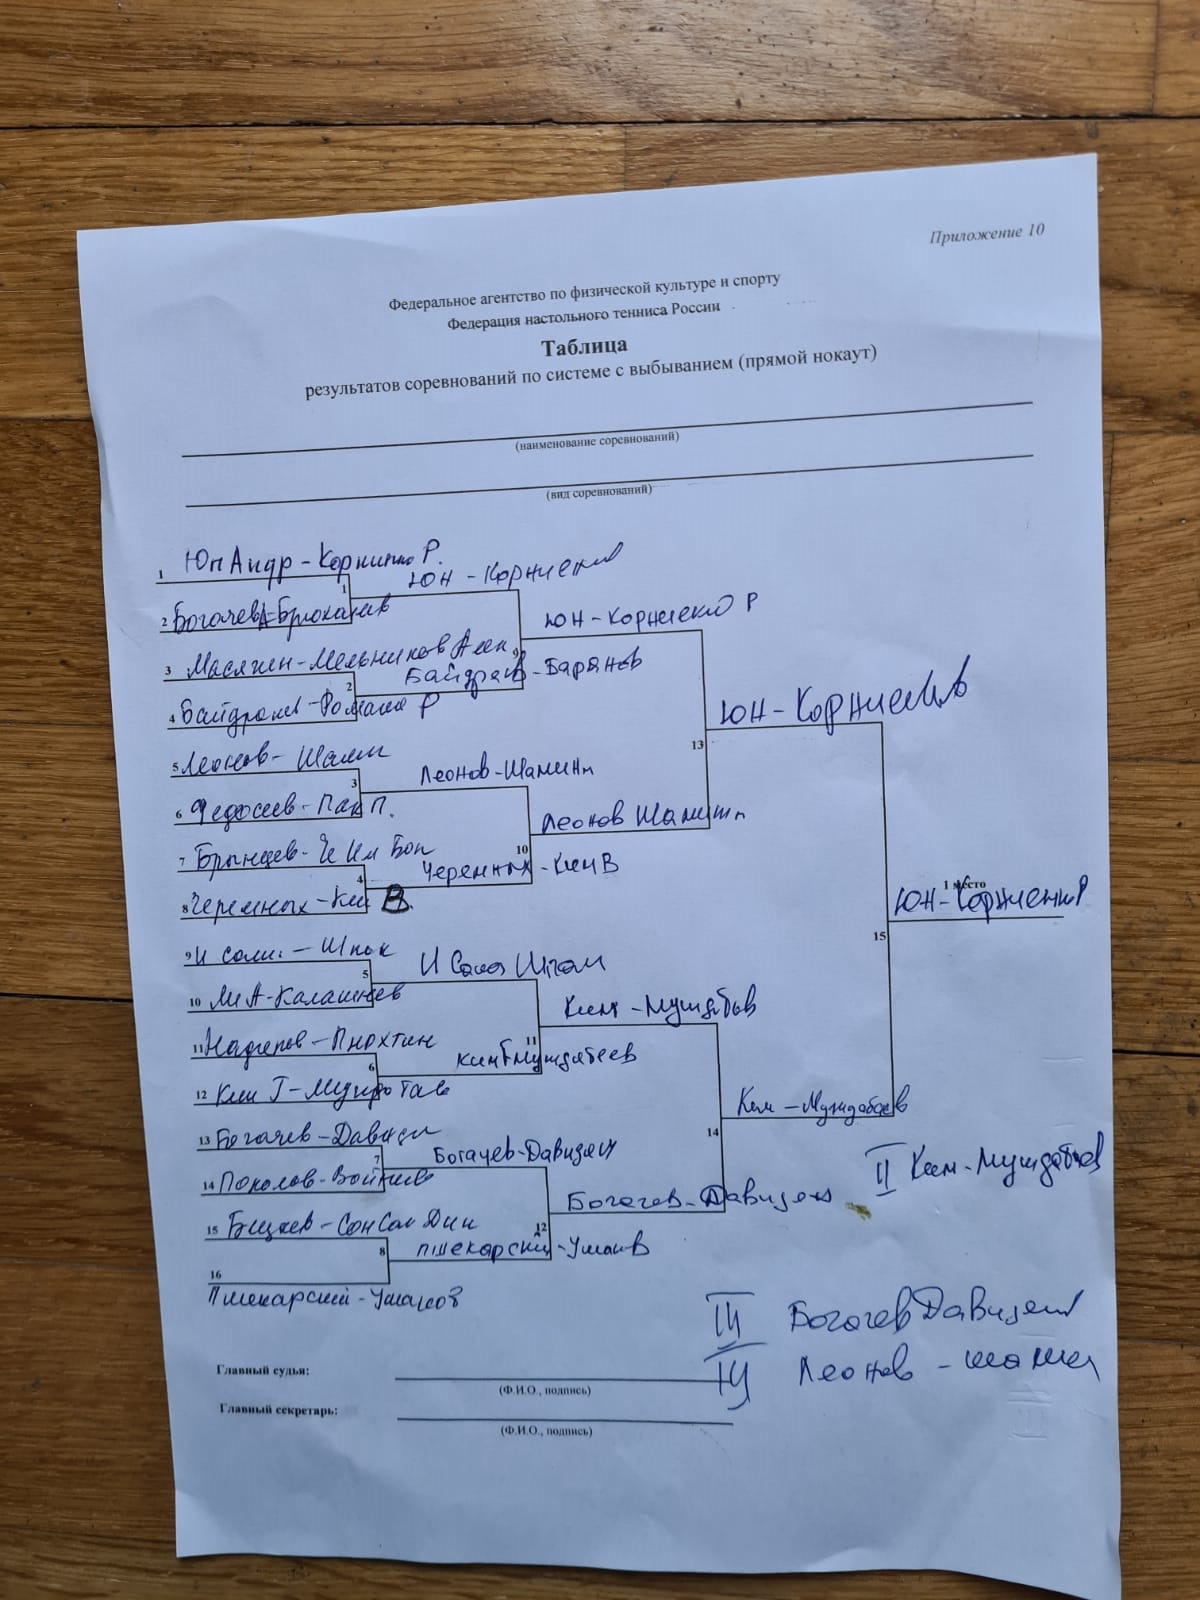 Приложение 10
Федеральное агентство по физической культуре и спорту
Федерация настольного тенниса России
Таблица
результатов соревнований по системе с выбыванием (прямой нокаут)
(наименование соревнований)
(вид соревнований)
1 Юн Андр - Корниенко Р.
1 ЮН - Корниенко
2 Богачев А - Брюханов
ЮН - Корниенко Р
3 Масягин - Мельников Алек
9
2 Байдраков - Баранов
4 Байдраков - Р
ЮН - Корниенко
13
5 Леонов - Шамин
3 Леонов - Шамин
6 Федосеев - Пак П.
Леонов Шамин
7 Брынцев -
10
4 Черемных - Ким В
8 Черемных - Ким В.
1 место
ЮН - Корниенко Р
15
9 И
5 И
10 Ли А - Калашнев
Ким - Муждабаев
11
11
6 Ким Г Муждабаев
12 Ким Г -
Ким - Муждабаев
14
13 Богачев - Давидян
7 Богачев - Давидян
II Ким - Муждабаев
14 - 
Богачев - Давидян
15
12
8 Пшекарский -
16
Пшекарский - Усманов
III Богачев Давидян
IV Леонов - Шамин
Главный судья:
(Ф.И.О., подпись)
Главный секретарь:
(Ф.И.О., подпись)